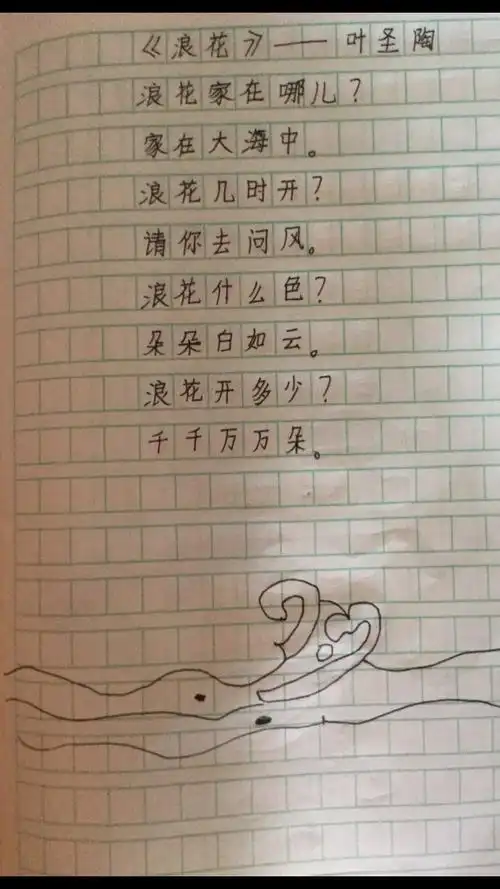 《浪花》——叶圣陶
浪花家在哪儿？
家在大海中。
浪花几时开？
请你去问风。
浪花什么色？
朵朵白如云。
浪花开多少？
千千万万朵。